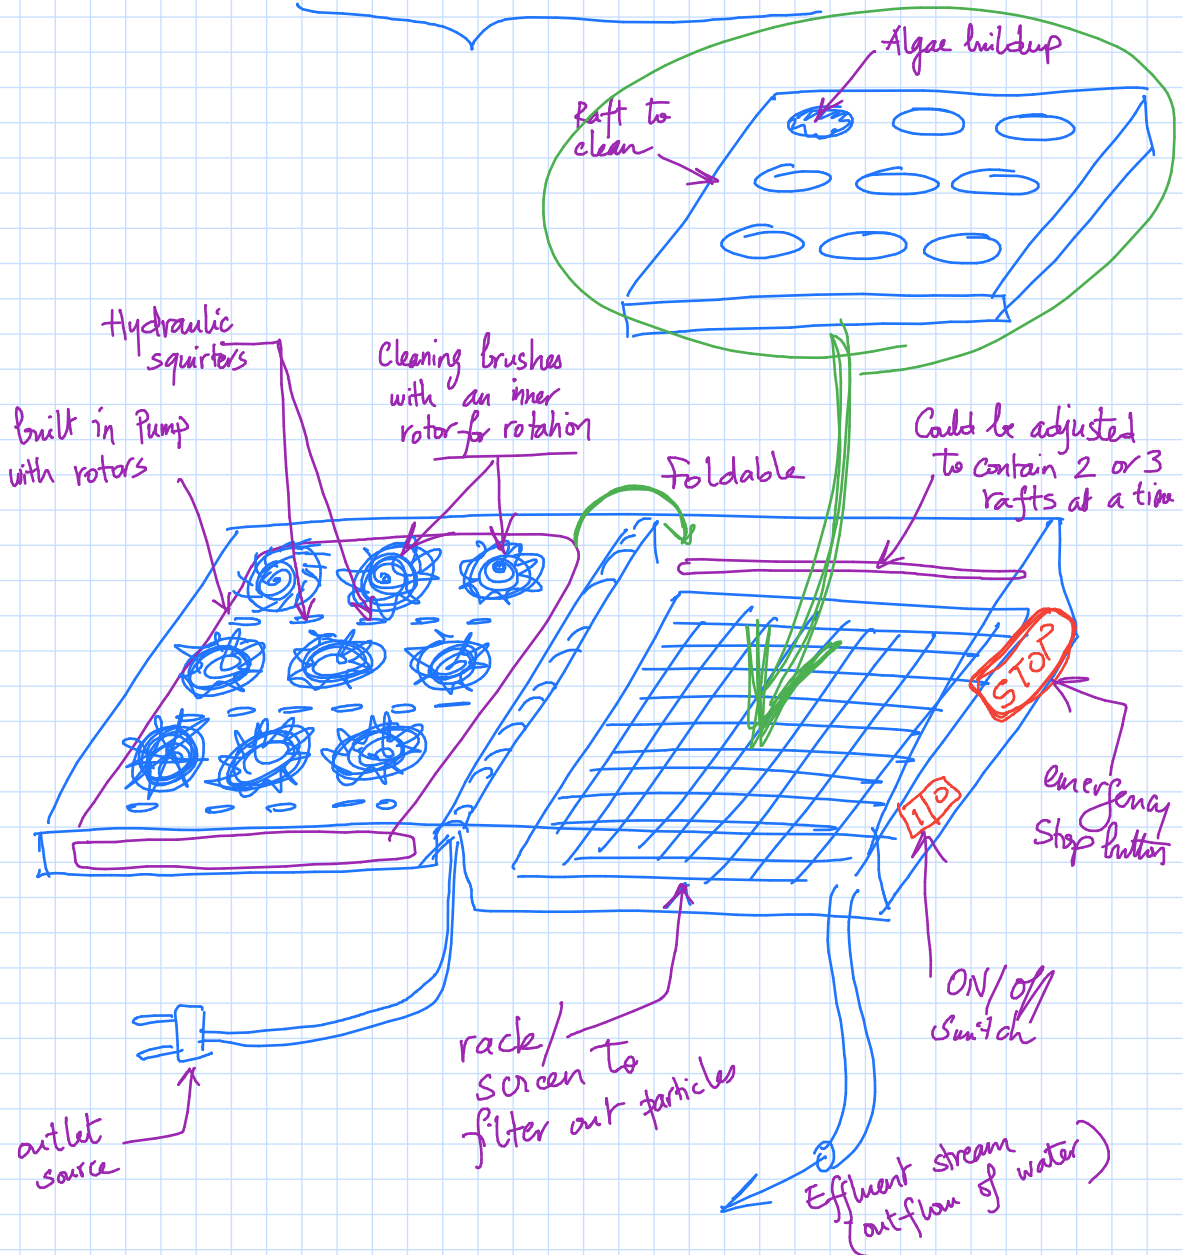 Algae buildup
Raft to
clean
Hydraulic
squirters
Cleaning brushes
with an inner
rotor for rotation
built in Pump
with rotors
foldable
Could be adjusted
to contain 2 or 3
rafts at a time
STOP
emergency
Stop button
1/0
ON/Off
Switch
rack/
screen to
filter out particles
outlet
source
Effluent stream
(outflow of water)